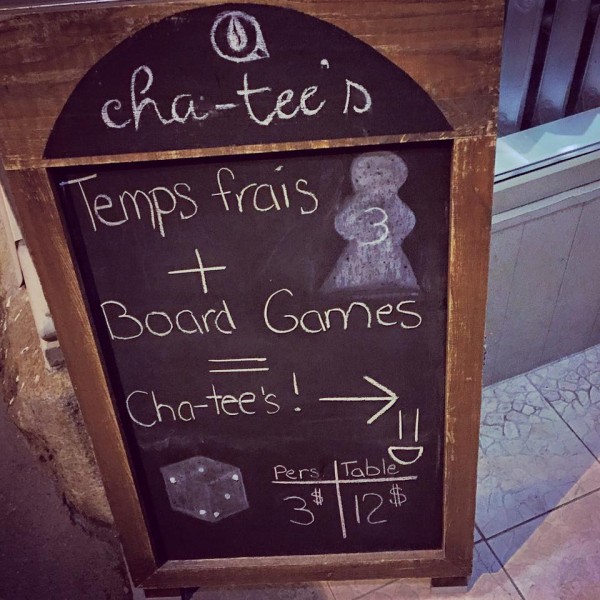 cha-tee's
Temps frais
3
+
Board Games
=
Cha-tee's! →
Pers. Table
3$ 12$